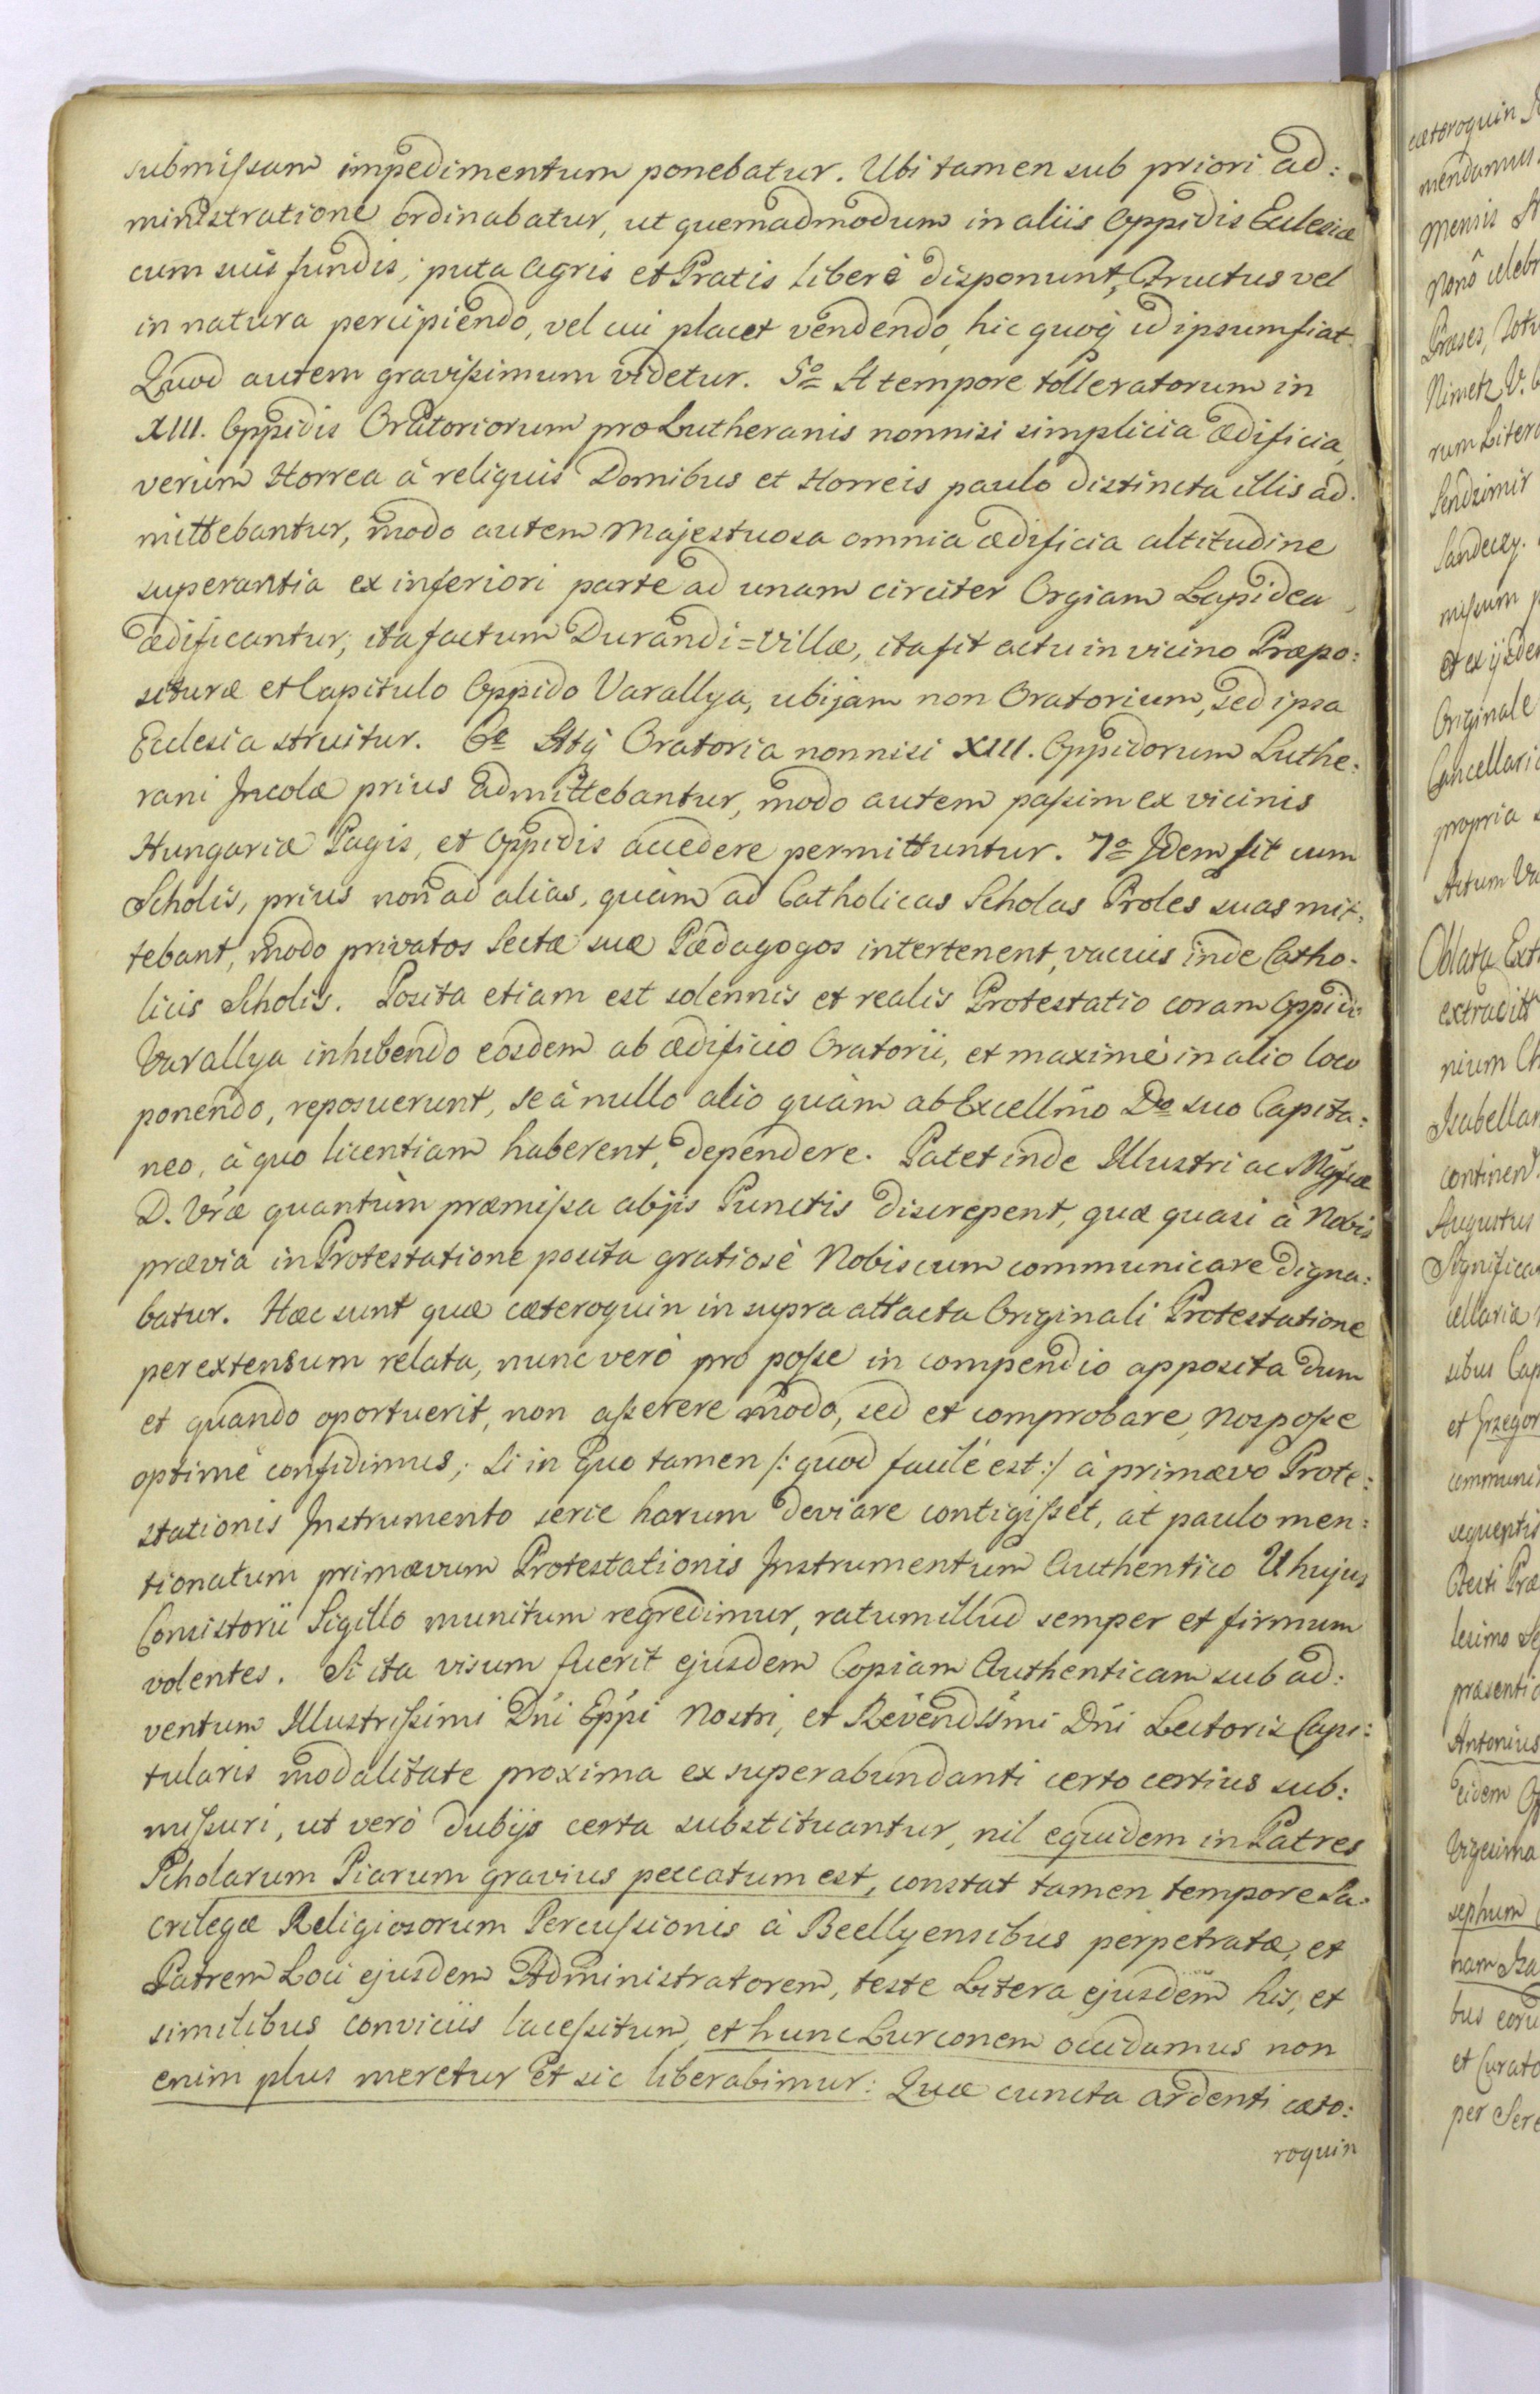 submissam impedimentum ponebatur. Ubi tamen sub priori ad:
ministratione ordinabatur, ut quemadmodum in aliis Oppidis Eclesiæ
cum suis fundis, puta Agris et Pratis liberè disponunt, Fructus vel
in natura percipiendo, vel cui placet vendendo, hic quoq̄ id ipsum fiat.
Quod autem gravissimum videtur. 5o A tempore tolleratorum in
XIII. Oppidis Oratoriorum pro Lutheranis nonnisi simplicia ædificia,
veriùm Horrea à reliquis Domibus et Horreis paulo distincta illis ad:
mittebantur, modo autem Majestuosa omnia ædificia altitudine
superantia ex inferiori parte ad unam circiter Orgiam Lapidea
ædificantur, ita factum Durandi=Villæ, ita fit actu in vicino Præpo:
situræ et Capitulo Oppido Varallya, ubi jam non Oratorium, sed ipsa
Eclesia struitur. 6o Atq̄ Oratoria nonnisi XIII. Oppidorum Luthe:
rani Incolæ prius admittebantur, modo autem passim ex vicinis
Hungariæ Pagis, et Oppidis accedere permittuntur. 7o Idem fit cum
Scholis, prius non ad alias, quàm ad Catholicas Scholas Proles suas mit:
tebant, modo privatos Sectæ suæ Pædagogos intertenent, vacuis inde Catho:
licis Scholis. Posita etiam est solennis et realis Protestatio coram Oppido
Varallya inhibendo eosdem ab ædificio Oratorii, et maximè in alio loco
ponendo, reposuerunt, se à nullo alio quàm ab Excellm̄o Dno suo Capita:
neo, à quo licentiam haberent, dependere. Patet inde Illustri ac Mgfcæ
D. Vræ quantùm præmissa abjis Punctis discrepent, quæ quasi à Nobis
prævia in Protestatione posita gratiosè Nobiscum communicare digna:
batur. Hæc sunt quæ cæteroquin in supra attacta Originali Protestatione
per extensum relata, nunc verò pro posse in compendio apposita dum
et quando oportuerit, non asserere modo, sed et comprobare, nos posse
optimè confidimus; Si in quo tamen /: quod facilè est :/ à primævo Prote:
stationis Instrumento serie harum deviare contigisset, at paulo men:
tionatum primævum Protestationis Instrumentum Authentico V hujus
Consistorii Sigillo munitum regredimur, ratum illud semper et firmum
volentes. Si ita visum fuerit ejusdem Copiam Authenticam sub ad:
ventum Illustrissimi Dńi Eppi Nostri, et Revendssmi Dńi Lectoris Capi:
tularis modalitate proxima ex superabundanti certo certius sub:
missuri, ut verò dubijs certa substituantur, nil equidem in Patres
Scholarum Piarum gravius peccatum est, constat tamen tempore Sa:
crilegæ Religiosorum Percussionis à Beellyensibus perpetratæ, et
Patrem Loci ejusdem Administratorem, teste Litera ejusdem his, et
similibus conviciis lacessitum, et hunc Lurconem occidamus non
enim plus meretur et sic liberabimur: Quæ cuncta ardenti cæte:
roquin